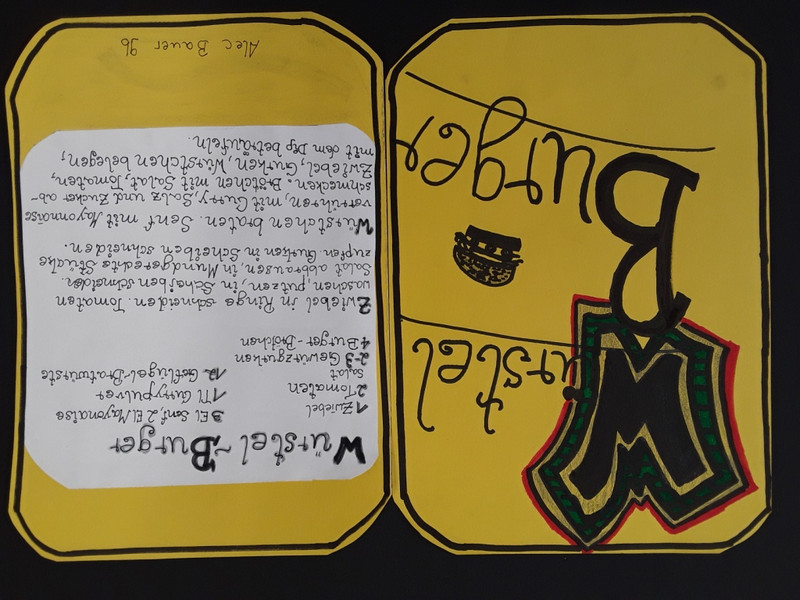 Würstel
Burger
Würstel-Burger
1 Zwiebel 3 El Senf, 2 El Mayonaise
2 Tomaten 1 Tl Currypulver
Salat 12 Geflügel-Bratwürste
2-3 Gewürzgurken
4 Burger-Brötchen
Zwiebel in Ringe schneiden. Tomaten
waschen, putzen, in Scheiben schneiden.
Salat abbrausen, in Mundgeredte Stücke
zupfen Gurken in Scheiben schneiden.
Würstchen braten. Senf mit Mayonnaise
verrühren, mit Curry, Salz und Zucker ab-
schmecken. Brötchen mit Salat, Tomaten,
Zwiebel, Gurken, Würstchen belegen,
mit dem Dip beträufeln.
Alec Bauer 9b